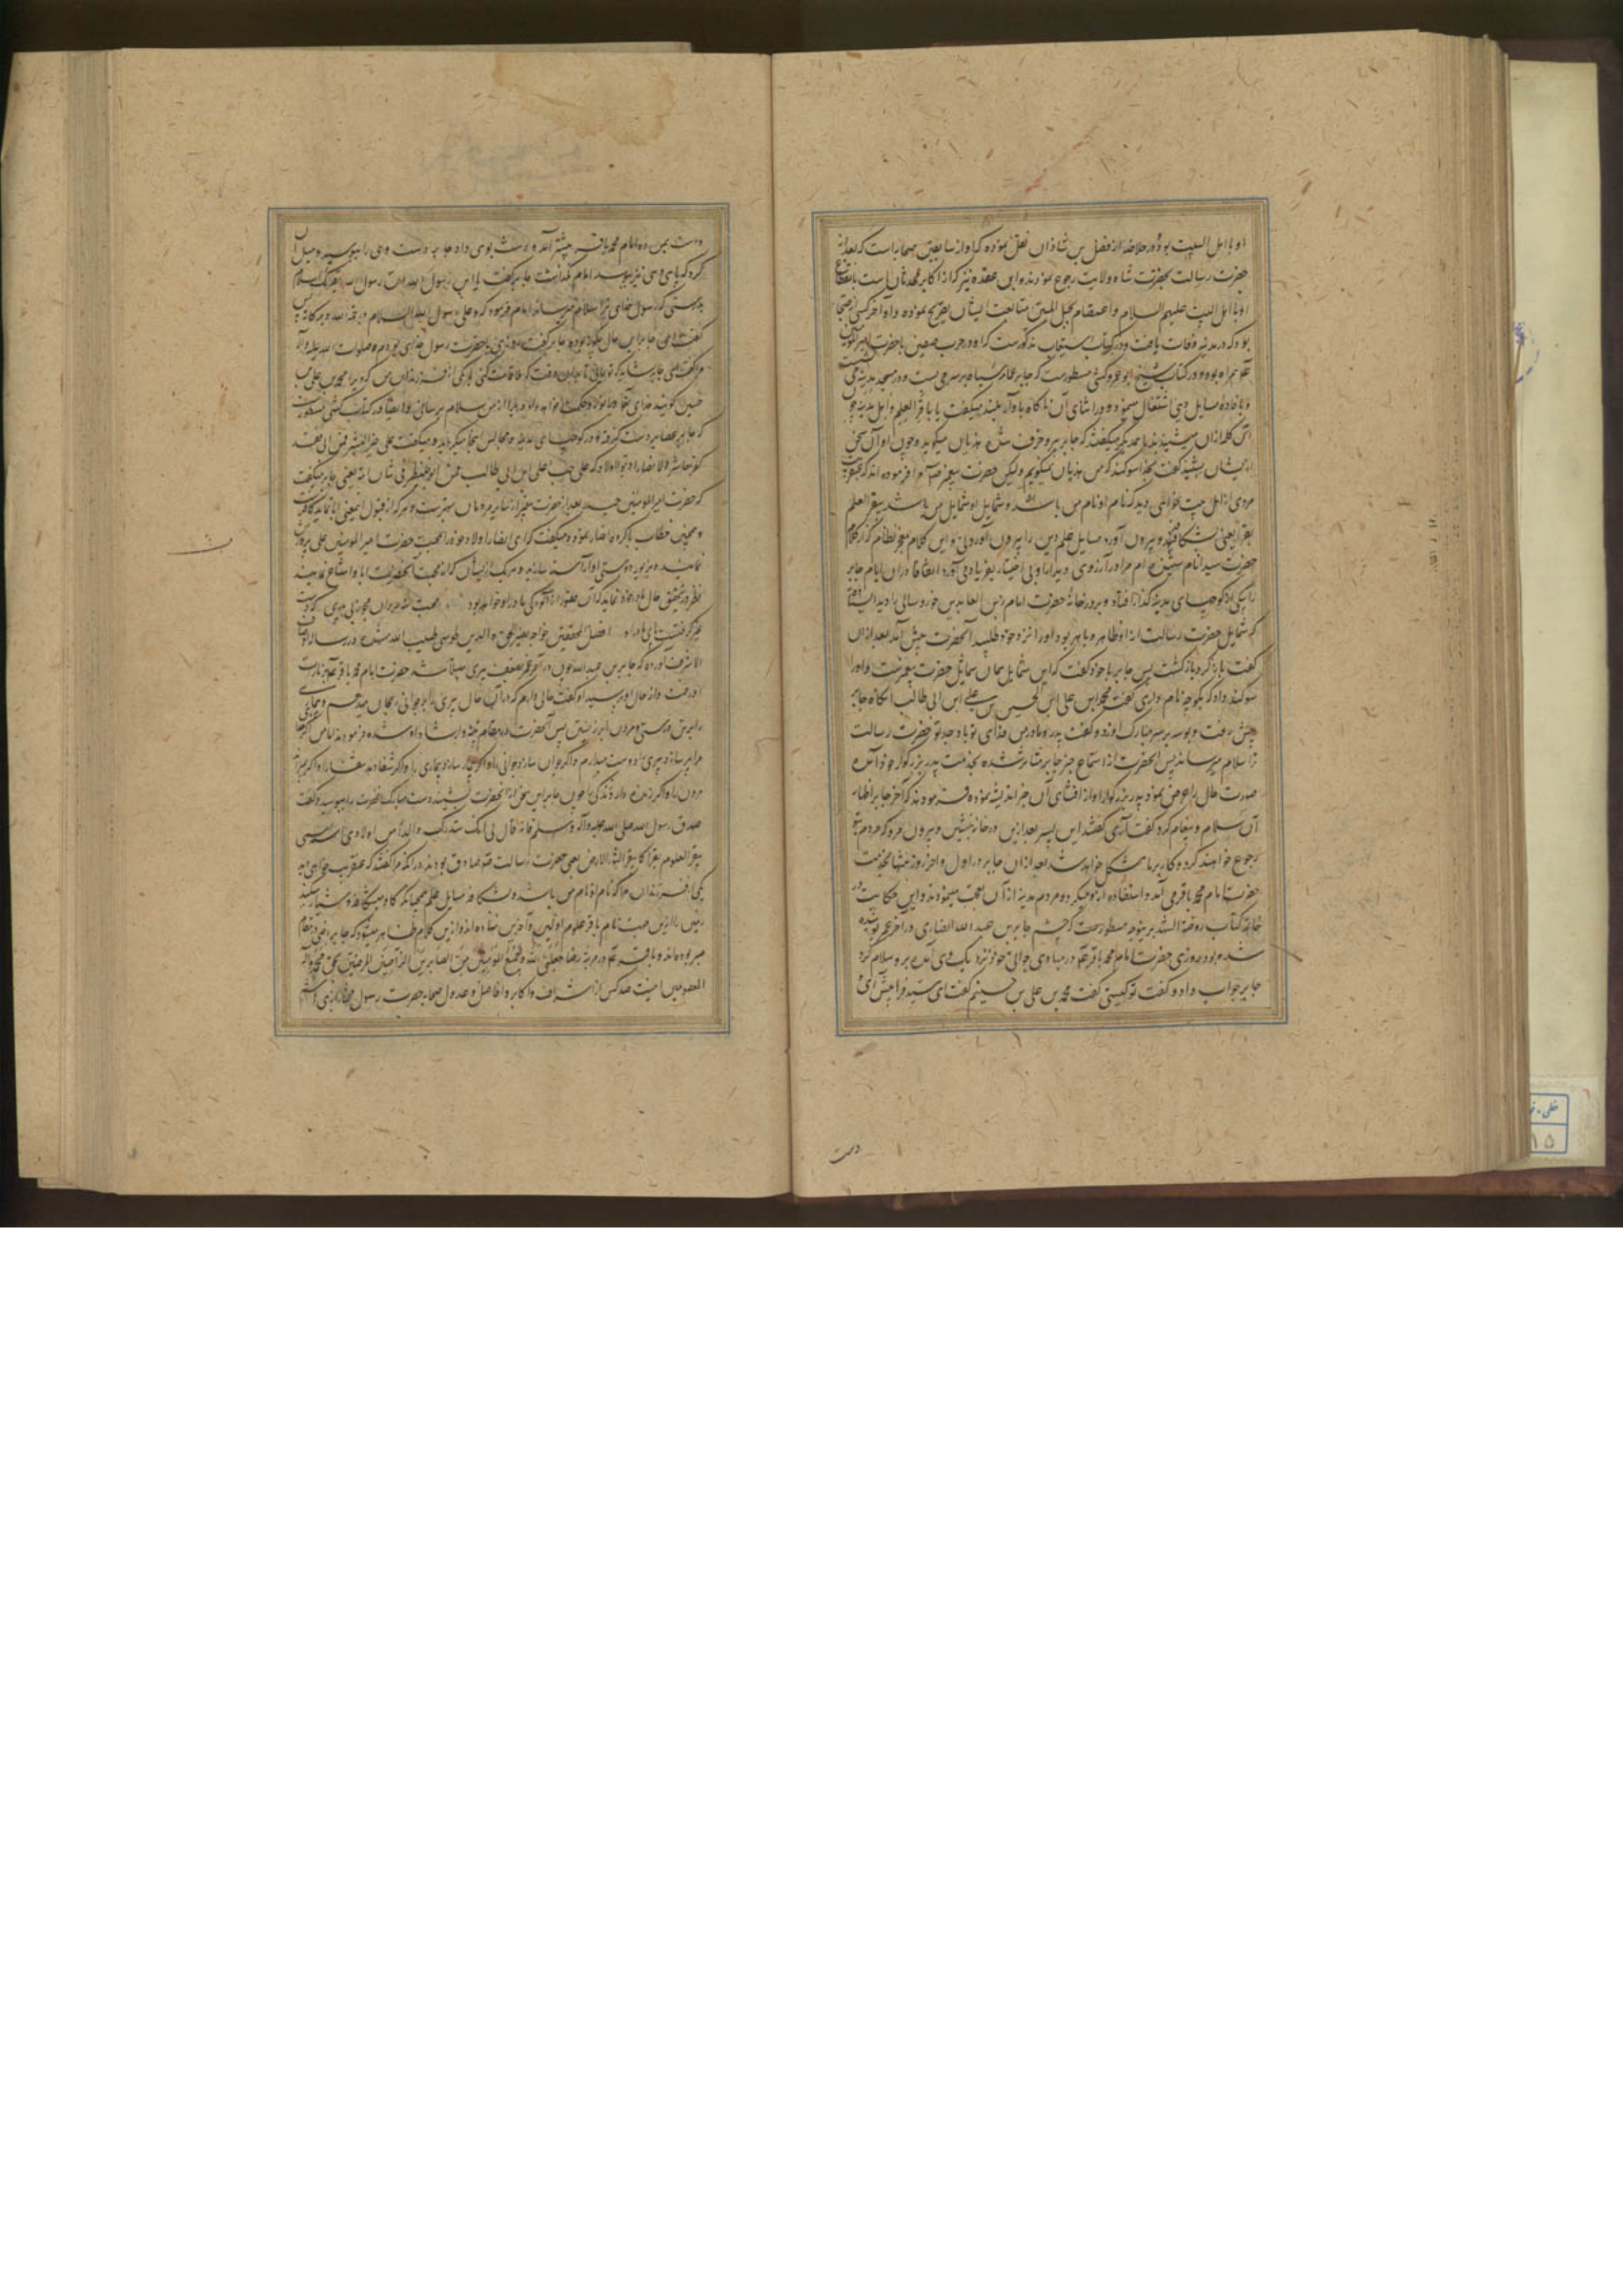 او با اهل البیت بود و در خلاصه از فضل بن شاذان نقل نموده که او از سابقین صحابه است که بعد از
حضرت رسالت بحضرت شاه ولایت رجوع نمودند و ابن عقده نیز که از اکابر محدثان است بانقطاع
او با اهل البیت علیهم السلام و اعتصام بحبل المتین متابعت ایشان تصریح نموده و او آخر کسی از صحابه
بود که در مدینه وفات یافت و در کتاب استیعاب مذکورست که او در حرب صفین با حضرت امیر المومنین
همراه بود و در کتاب شیخ ابو عمرو کشی مسطورست که جابر عمامه سیاه بر سر می بست و در مسجد مدینه می
و بافاده مسایل دینی اشتغال مینمود و در اثنای آن ناگاه باواز بلند میگفت یا باقر العلم و اهل مدینه چو
آن کلمه از آن میشنیدند با همدیگر میگفتند که جابر پیر و خرف شده هذیان میگوید و چون او آن سخن
ایشان بشنید گفت بخدا سوگند که من هذیان نمیگویم ولیکن حضرت پیغمبر مرا فرموده اند که
مردی از اهل بیت خواهی دید که نام او نام من باشد و شمایل او شمایل من باشد یبقر العلم
بقرا یعنی بشکافد و بیرون آورد مسایل علم دین را بیرون آوردنی و این کلام معجز نظام
حضرت سید انام مرا در آرزوی دیدار او بی اختیار بفریاد می آورد اتفاقا در آن ایام جابر
را بیکی از کوچهای مدینه گذار افتاد و بر در خانه حضرت امام زین العابدین خورد سالی را دید ایستاده
که شمایل حضرت رسالت از او ظاهر و باهر بود او را نزد خود طلبید آنحضرت پیش آمد بعد از آن
گفت باز گرد بازگشت پس جابر با خود گفت که این شمایل همان شمایل حضرت پیغمبرست و او را
سوگند داد که بگو چه نام داری گفت محمد ابن علی ابن الحسین بن علی ابن ابی طالب آنگاه جابر
پیش رفت و بوسه بر سر مبارک او زد و گفت پدر و مادر من فدای تو باد جد تو حضرت رسالت
ترا سلام میرساند پس آنحضرت از استماع خبر جابر متاثر شده بخدمت پدر بزرگوار خود آمده
صورت حال را عرض نمود پدر بزرگوار او از افشای آن خبر اندیشه نموده فرمودند که آخر جابر اظهار
آن سلام و پیغام کرد گفت آری گفتند ای پسر بعد ازین در خانه بنشین و بیرون مرو که مردم بتو
رجوع خواهند کرد و کار بر ما مشکل خواهد شد بعد از آن جابر در اول و آخر روز بخدمت
حضرت امام محمد باقر می آمد و استفاده ازو میکرد و مردم مدینه از آن تعجب مینمودند و این حکایت در
خاتمه کتاب روضة الشهدا برینوجه مسطورست که چشم جابر بن عبد الله انصاری در آخر عمر پوشیده
شده بود روزی حضرت امام محمد باقر در مبادی جوانی خود نزدیک وی آمد بر وی سلام کرد
جابر جواب داد و گفت تو کیستی گفت محمد بن علی بن حسینم گفت ای سید فرا پیش آی و
دست
دست بمن ده امام محمد باقر پیشتر آمد و دست بوی داد جابر دست وی را ببوسید و میل آن
کرد که پای وی نیز ببوسد امام نگذاشت جابر گفت یا ابن رسول الله ان رسول الله یقرئک السلام
بدرستی که رسول خدای ترا سلام میرساند امام فرمود که و علی رسول الله السلام و رحمة الله و برکاته پس
گفت ای جابر این حال چگونه بوده جابر گفت روزی با حضرت رسول خدای بودم صلوات الله علیه و آله
مرا گفت ای جابر شاید که تو بمانی تا بدان وقت که ملاقات کنی با یکی از فرزندان من که ویرا محمد بن علی بن
حسین گویند خدای تعالی ویرا نور و حکمت خواهد داد او را از من سلام برسان و ایضا در کتاب کشی مسطورست
که جابر عصا بر دست گرفته در کوچهای مدینه و مجالس ایشان میگردید و میگفت علی خیر البشر فمن ابی فقد
کفر معاشر الانصار ادبوا اولادکم علی حب علی ابن ابی طالب فمن ابی فلینظر فی شان امه یعنی جابر میگفت
که حضرت امیر المومنین بعد از حضرت پیغمبر از سایر مردمان بهترست و هر که از قبول این معنی ابا نماید کافرست
و همچنین خطاب با گروه انصار نموده میگفت که ای انصار اولاد خود را بمحبت حضرت امیر المومنین علی پرورش
نمایید و بزیور دوستی او آراسته سازید و هر یک از ایشان که از محبت آنحضرت ابا و امتناع نمایند
نظر در تحقیق حال مادر خود نماید
افضل المحققین خواجه نصیر الحق و الدین طوسی طیب الله مشهده در رساله اوصاف
الاشراف آورده که جابر بن عبد الله چون در آخر عمر بضعف پیری مبتلا شد حضرت امام محمد باقر بزیارت
او رفت و از حال او پرسید او گفت حالی دارم که در آن حال پیری را بر جوانی رجحان میدهم و بیماری
را بر تن درستی و مردن را بر زیستن پس آنحضرت فرمودند اما من اگر خدا
مرا پیر سازد پیری را دوست میدارم و اگر جوان سازد جوانی را و اگر بیمار سازد بیماری را و اگر شفا دهد شفا را و اگر بمیراند
مردن را و اگر زنده دارد زندگی را چون جابر این سخن از آنحضرت بشنید دست مبارک آنحضرت را ببوسید و گفت
صدق رسول الله صلی الله علیه و آله و سلم فانه قال لی انک ستدرک ولدا من اولادی اسمه اسمی
یبقر العلوم بقرا کما یبقر الثور الارض یعنی حضرت رسالت صادق بودند در آنکه مرا گفتند که عنقریب خواهی دید
یکی از فرزندان مرا که نام او نام من باشد و بشکافد مسایل علم همچنانکه گاو میشکافد و شیار میکند
زمین را ازین جهت نام باقر علوم اولین و آخرین نهاده اند و ازین کلام ظاهر میشود که جابر
صبر بوده اند و باقر در مرتبه رضا جعلنا الله و جمیع المؤمنین من الصابرین الراضین المرضیین بحق محمد و آله
المعصومین